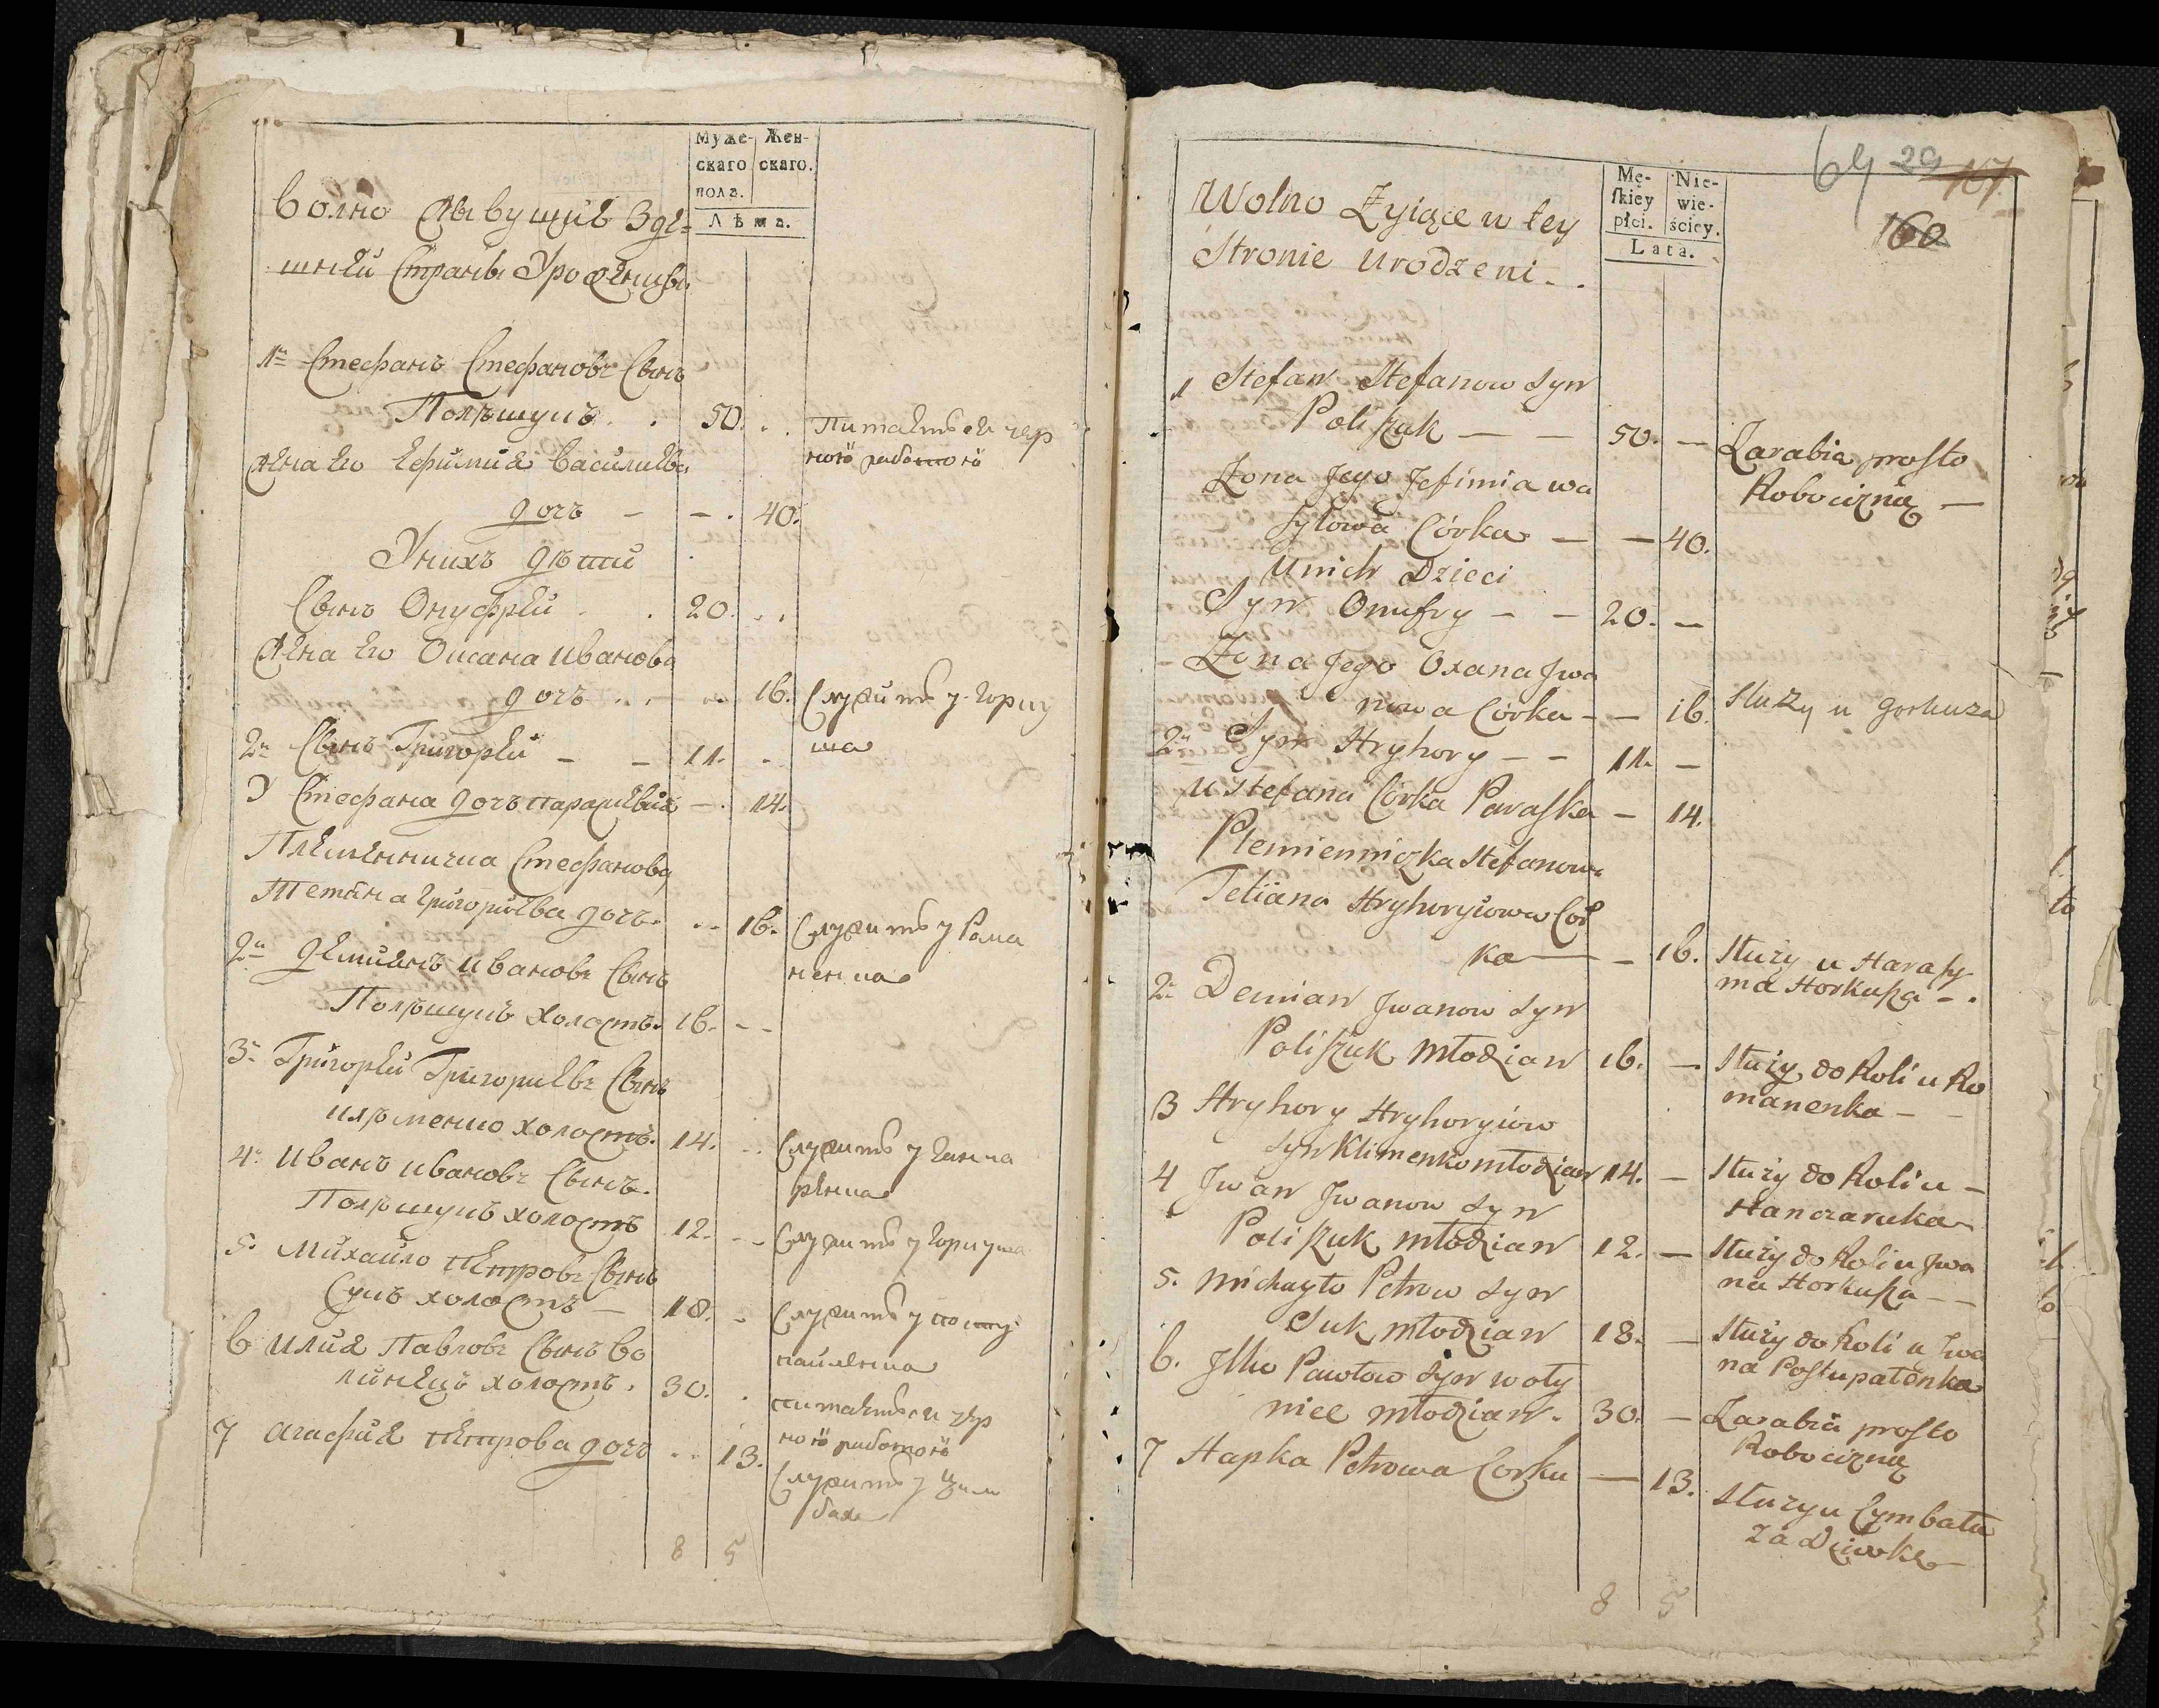 Муже-
скаго
пола.
Жен-
скаго.
Лѣта.
Волно Живущие Зде=
шней Страны Уроженцы
1й Стефанъ Стефановъ Сынъ
Полѣщукъ . . 50. . . Питается чер
ною работою
Жена Его Ефимия Василиева
дочь — — . 40.
У нихъ дѣти
Сынъ Онуфрей . . 20. . .
Жена Его Оксана Иванова
дочь . . — 16. Служитъ у Горку
ша
2й Сынъ Григорей — — 11. .
У Стефана дочь Параскевия — . 14.
Племянничка Стефанова
Тетяна Григориева дочь . . . 16. Служитъ у Рома
ненка
2й Демиянъ Ивановъ Сынъ
Полѣщукъ холостъ. 16. - -
3й Григорей Григориевъ Сынъ
Клѣменко холостъ. 14. . . Служитъ у Ганча
рука
4й Иванъ Ивановъ Сынъ.
Полѣщукъ холостъ 12. - - Служитъ у Горкуша
5й Михайло Петровъ Сынъ
Сукъ холостъ — 18. - Служитъ у посту
паленка
6 Илия Павловъ Сынъ Во
линецъ холостъ . 30. . питается чер
ною работою
7 Агафия Петрова дочь . . 13. Служитъ у Цим
бала
8 5
69 29 167
160
Mę-
skiey
płci.
Nie-
wie-
ściey.
Lata.
Wolno Żyiące w tey
Stronie urodzeni . .
1 Stefan Stefanow Syn
Poliszuk — — 50. — Zarabia prosto
Robocizną —
Żona Jego Jefimia wa
sylowa Córka — — 40.
U nich Dzieci
Syn Onufry — — 20. —
Żona Jego Oxana Jwa
nowa Córka — — 16. Służy u Gorkusza
2й Syn Hryhory — — 11. —
U Stefana Córka Paraska — 14.
Plemienniczka Stefanowa
Tetiana Hryhoryiowa Cór
ka — — 16. Służy u Harasy
ma Horkusza — .
2. Demian Jwanow Syn
Poliszuk młodzian 16. — Służy do Roli u Ro
manenka — —
3 Hryhory Hryhoryiow
Syn Klimenko młodzian 14. — Służy do Roli u —
Hanczaruka
4 Jwan Jwanow Syn
Poliszuk młodzian 12. — Służy do Roli u Jwa
na Horkusza — —
5. Michayło Petrow Syn
Suk młodzian 18. — Służy do Roli u Jwa
na Postupalenka
6. Jlko Pawłow Syn Woły
niec młodzian . 30. — Zarabia prosto
Robocizną
7 Hapka Petrowa Corku — 13. Służy u Cymbału
za Dziewkę
8 5